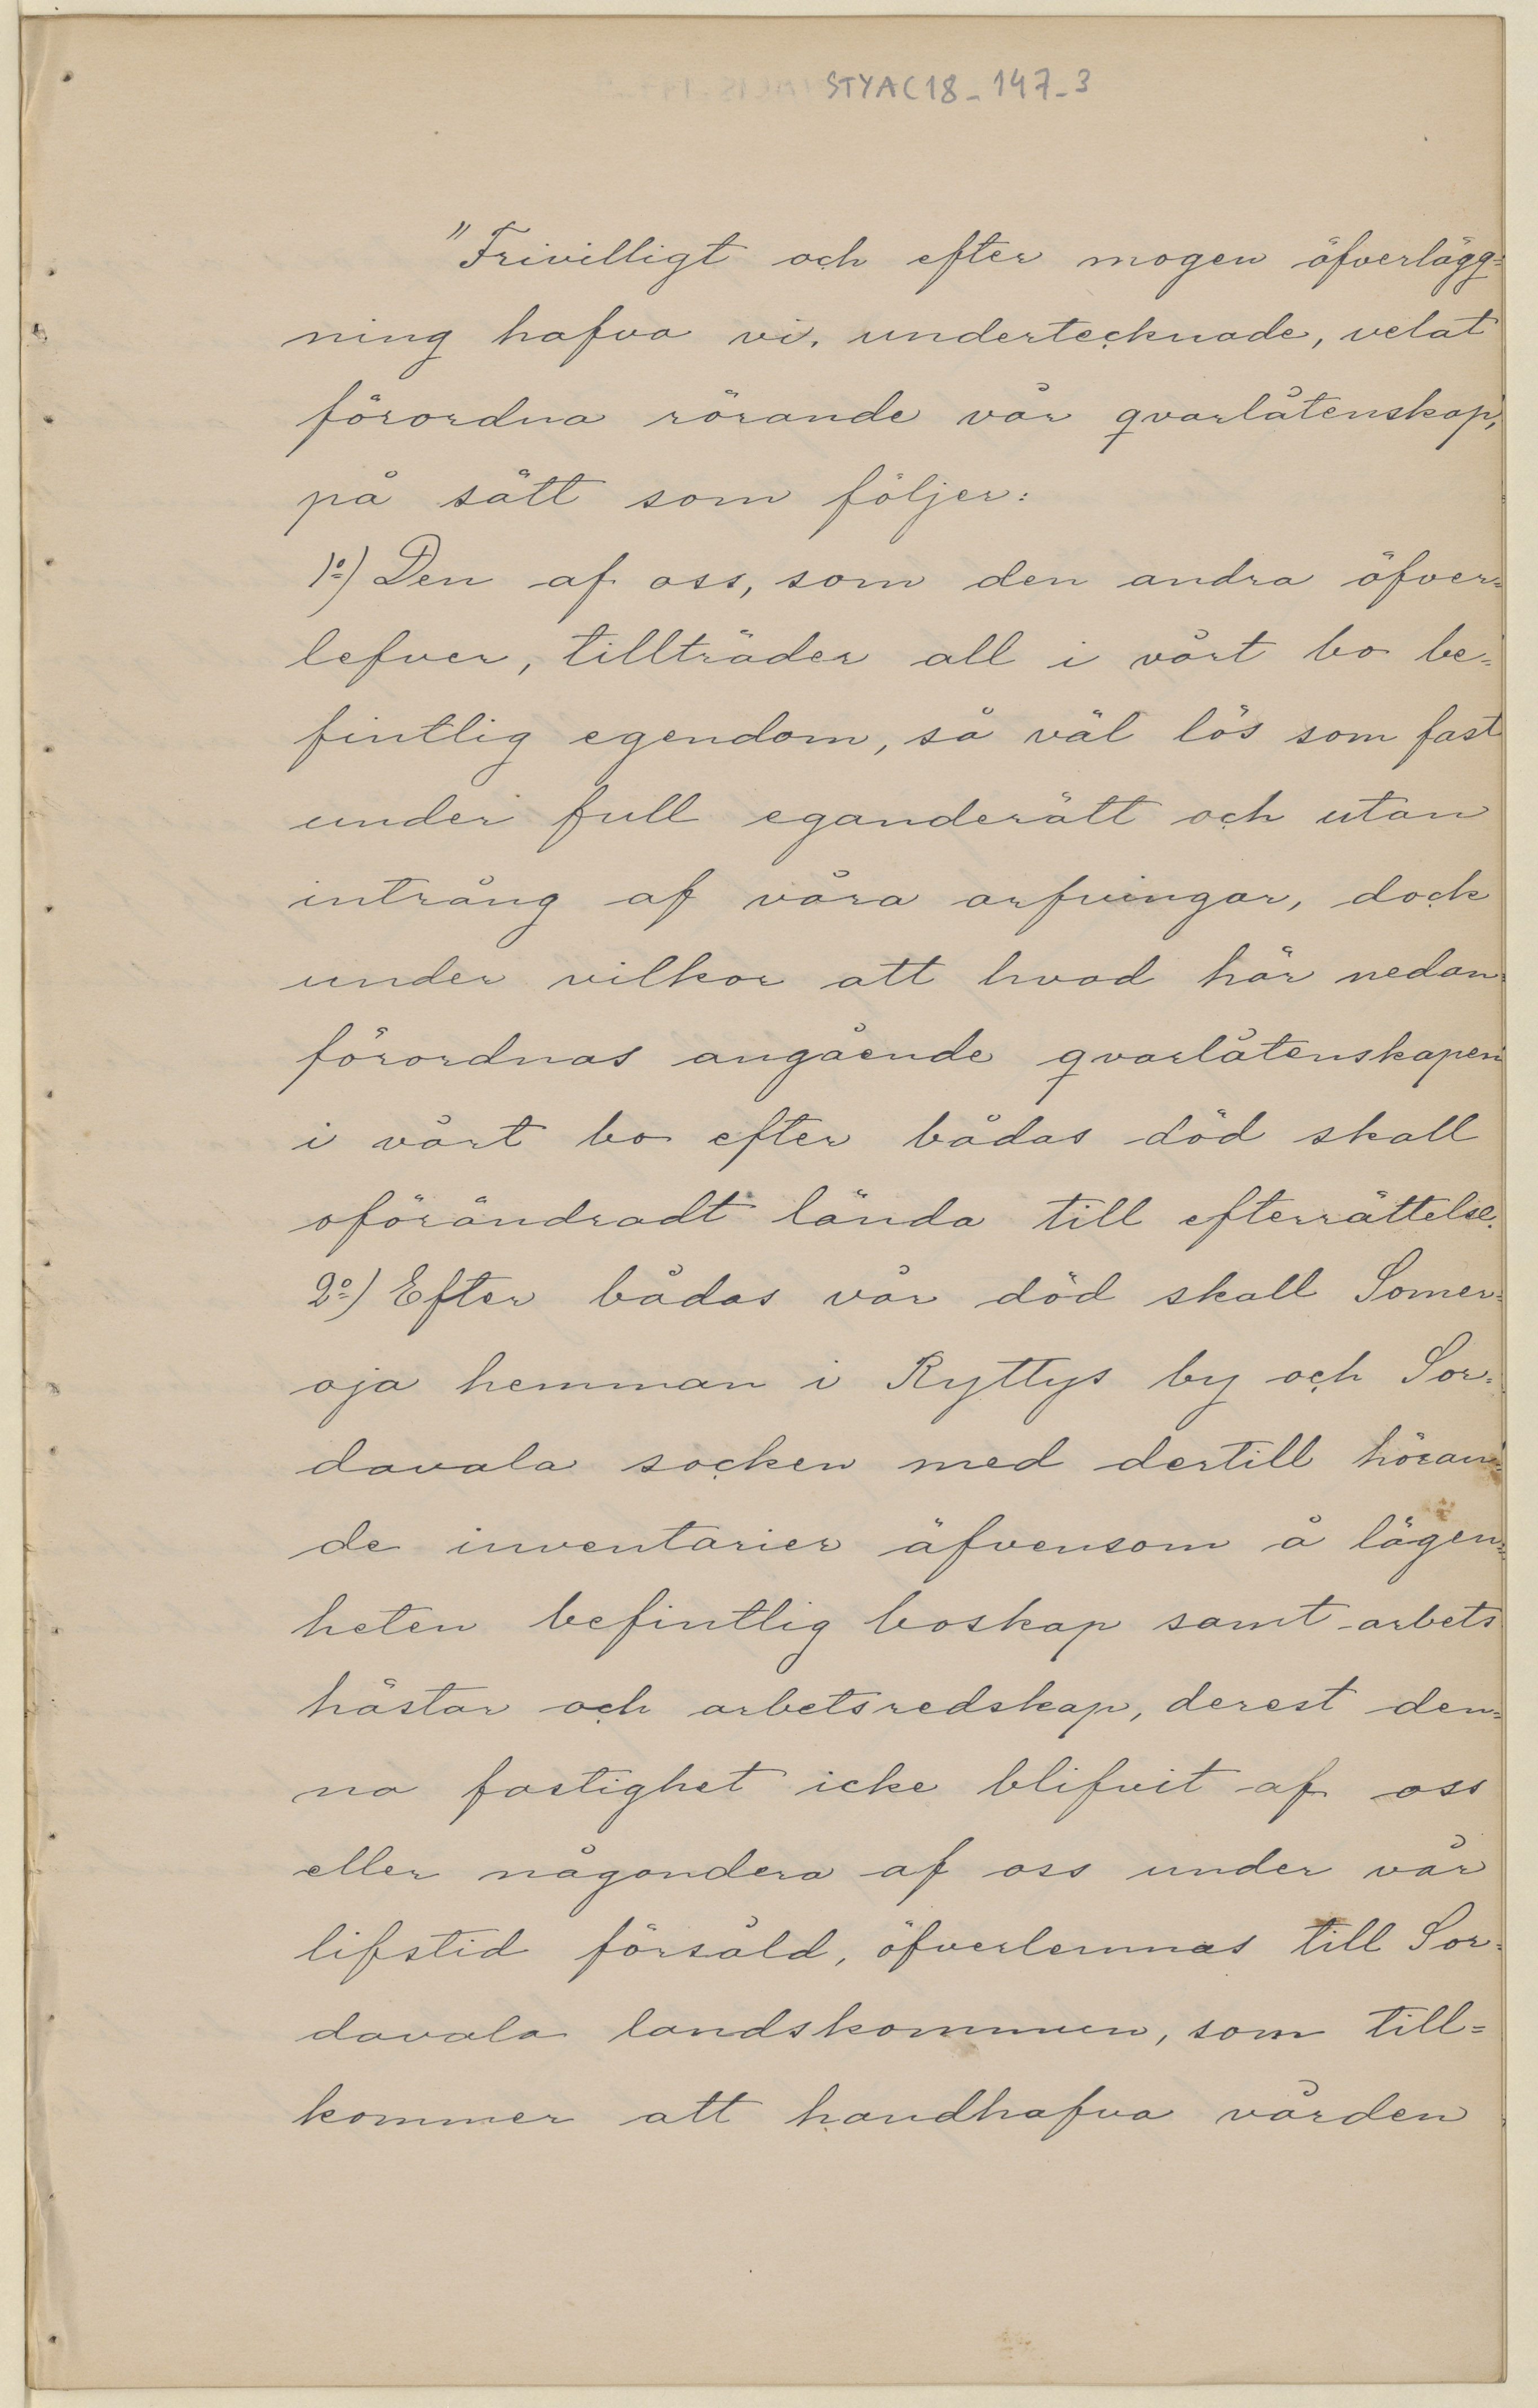 STYAC18_147_3
"Frivilligt och efter mogen öfverlägg=
ning hafva vi, undertecknade, velat
förordna rörande vår qvarlåtenskap,
på sätt som följer:
1º) Den af oss, som den andra öfver=
lefver, tillträder all i vårt bo be=
fintlig egendom, så väl lös som fast
under full eganderätt och utan
intrång af våra arfvingar, dock
under vilkor att hvad här nedan
förordnas angående qvarlåtenskapen
i vårt bo efter bådas död skall
oförändradt lända till efterrättelse.
2º) Efter bådas vår död skall Somer=
oja hemman i Ryttys by och Sor=
davala socken med dertill höran=
de inventarier äfvensom å lägen=
heten befintlig boskap samt arbets
hästar och arbetsredskap, derest den=
na fastighet icke blifvit af oss
eller någondera af oss under vår
lifstid försåld, öfverlemnas till Sor=
davala landskommun, som till=
kommer att handhafva vården